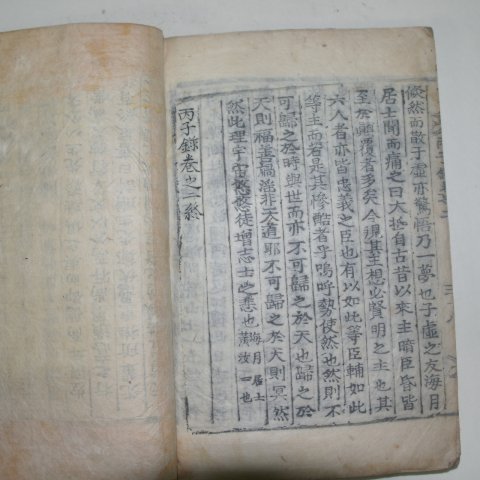 倏然而散子虛亦驚悟乃一夢也子虛之友海月
居士聞而痛之曰大抵自古昔以來主暗臣昏皆
至於顚覆者多矣今觀其主想必賢明之主也其
六人者亦皆忠義之臣也有以如此等臣輔如此
等主而若是其慘酷者乎嗚呼勢使然也然則不
可歸之於時與世而亦不可歸之於天也歸之於
天則福善禍淫非天道耶不可歸之於天則冥然
然此理宇宙悠悠徒增志士之悲也海月居士
黃汝一也
丙子錄卷之二終